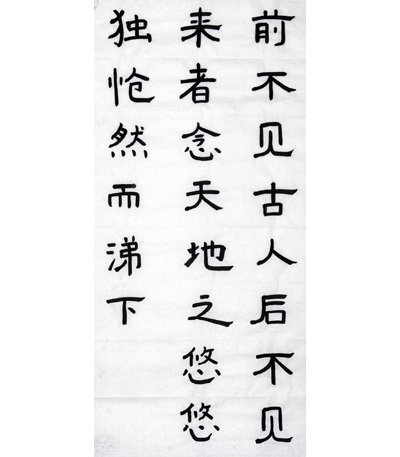 前不见古人后不见
来者念天地之悠悠
独怆然而涕下